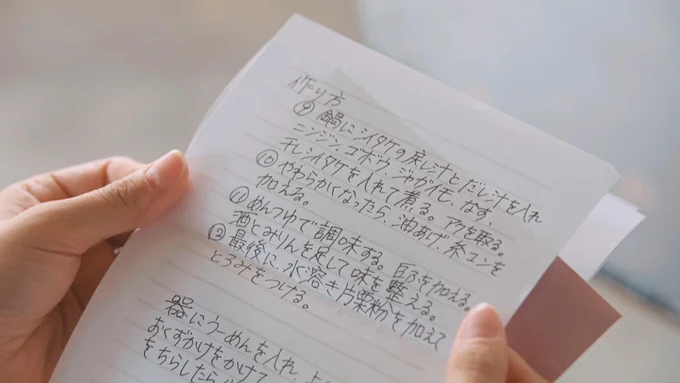 作り方
⑨鍋にシイタケの戻し汁とだし汁を入れ
ニンジン、ゴボウ、ジャガイモ、なす、
干しシイタケを入れて煮る。アクを取る。
⑩やわらかになったら、油あげ、糸コンを
加える。
⑪めんつゆで調味する。豆フを加える。
酒とみりんを足して味を整える。
⑫最後に、水溶き片栗粉を加えて
とろみをつける。
器にうーめんを入れ、
おくずかけをかけて
をちらしたら